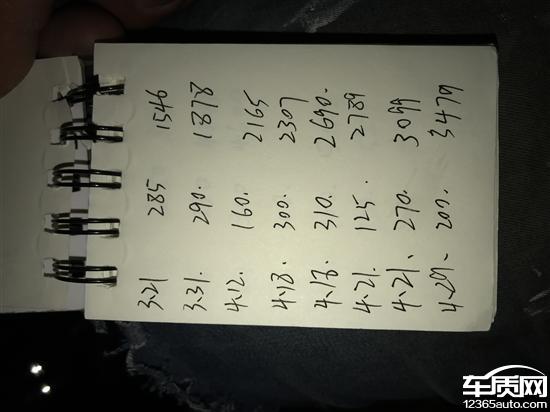 3.21 285 1546
3.31. 290. 1878
4.12. 160. 2165
4.18. 300. 2307
4.18. 310. 2690.
4.21. 125. 2789
4.21. 270. 3099
4.29. 200. 3479
车质网
12365auto.com